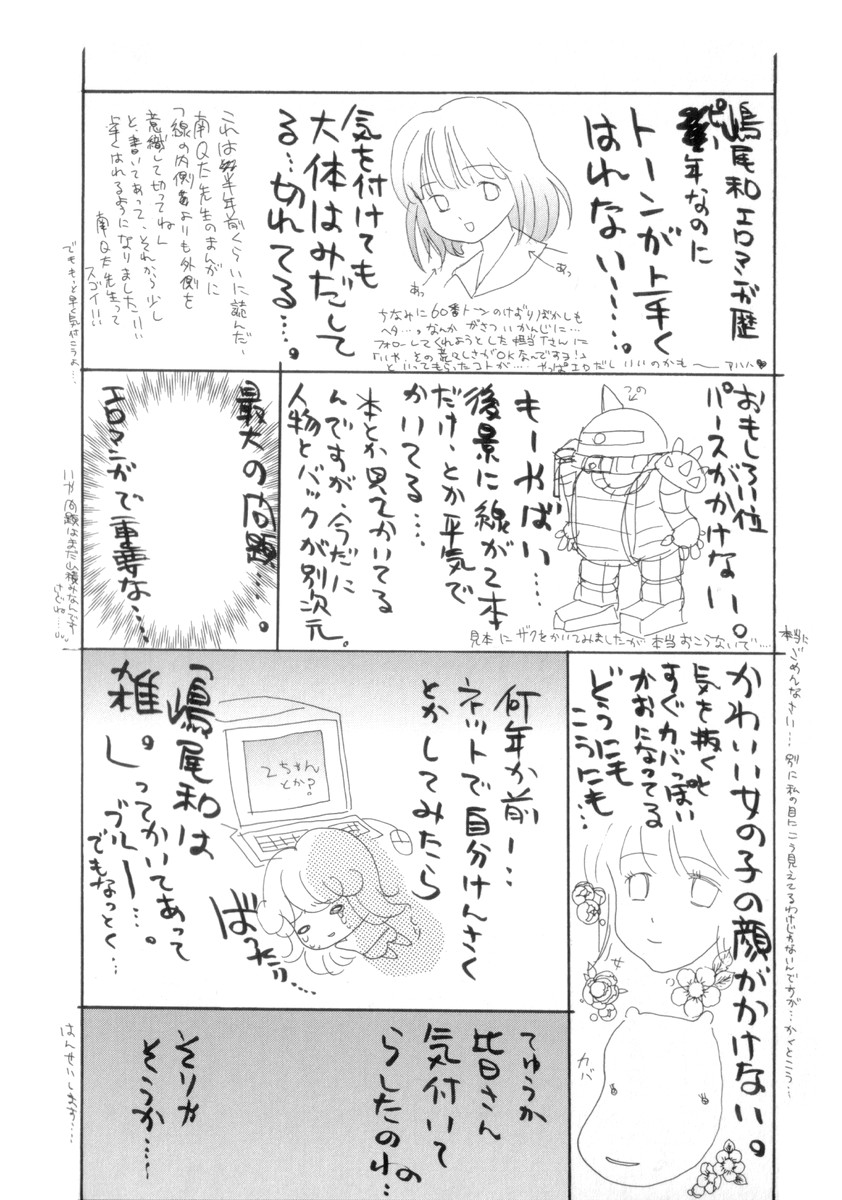 嶋尾和エロマンガ歴
ピー年なのに
トーンが上手く
はれない……。
気を付けても
大体はみだして
る…切れてる…。
あっ
あっ
ちなみに60番トーンのけずりぼかしも
ヘタ…っなんか がさついかんじに…
フォローしてくれようとした担当Tさんに
「いや、その荒々しさがOKなんですョ!」
といってもらったコトが… やっぱエロだしいいのかも〜 アハハ♥
これは半年前くらいに読んだ、
南Q太先生のまんがに
「線の内側よりも外側を
意識して切ってね」
と、書いてあって、それから少し
上手くはれるようになりました!!!
南Q太先生って
スゴイ!!
でももっと早く気付こうよ…
おもしろい位
パースがかけない。
もーやばい…
後景に線が2本
だけ、とか平気で
かいてる…
本とか見てかいてる
んですが、今だに
人物とバックが別次元。
つの
見本にザクをかいてみましたが本当おこらないで…
最大の問題…。
エロマンガで重要な…
いや問題はまだ山積みなんです
けどね…。
かわいい女の子の顔がかけない。
気を抜くと
すぐカバっぽい
かおになってる
どうにも
こうにも…
女
カバ
本当に
ごめんなさい… 別に私の目にこう見えてるわけじゃないんですが…かくとこう…
何年か前ー…
ネットで自分けんさく
とかしてみたら
2ちゃん
とか?
「嶋尾和は
雑。」ってかいてあって
ブルー…。
でもなっとく…
ばったり…
てゆうか
皆さん
気付いて
らしたのね…の
そりゃ
そうか……
はんせいします…